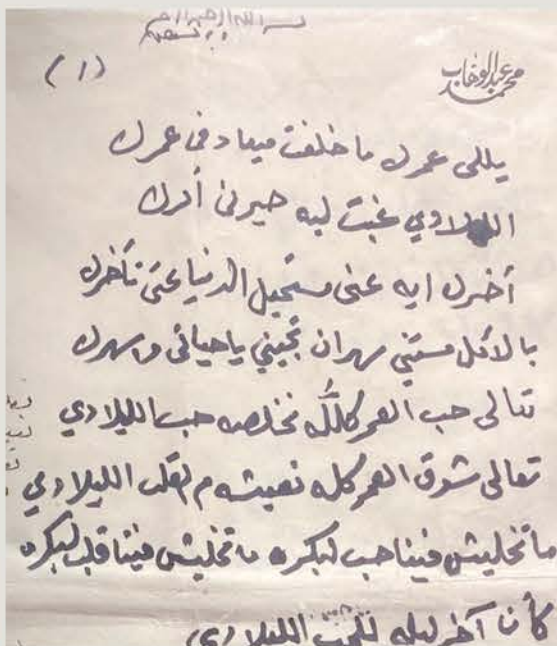 بسم الله الرحمن الرحيم
(١)
محمد عبد الوهاب
يللى عمرك ما خلفت ميعاد فى عمرك
الليلادي غبت ليه حيرنى أمرك
أخرك ايه عنى مستحيل الدنيا عنى تأخرك
بالأمل مستني سهران تجيني يا حياتى واسهرك
تعالى حب العمر كله نخلصه حب الليلادي
تعالى شوق العمر كله نعيشه م القلب الليلادي
ما تخليش فينا حب لبكره ما تخليش فينا قلب لبكره
كأن آخر ليله للحب الليلادي